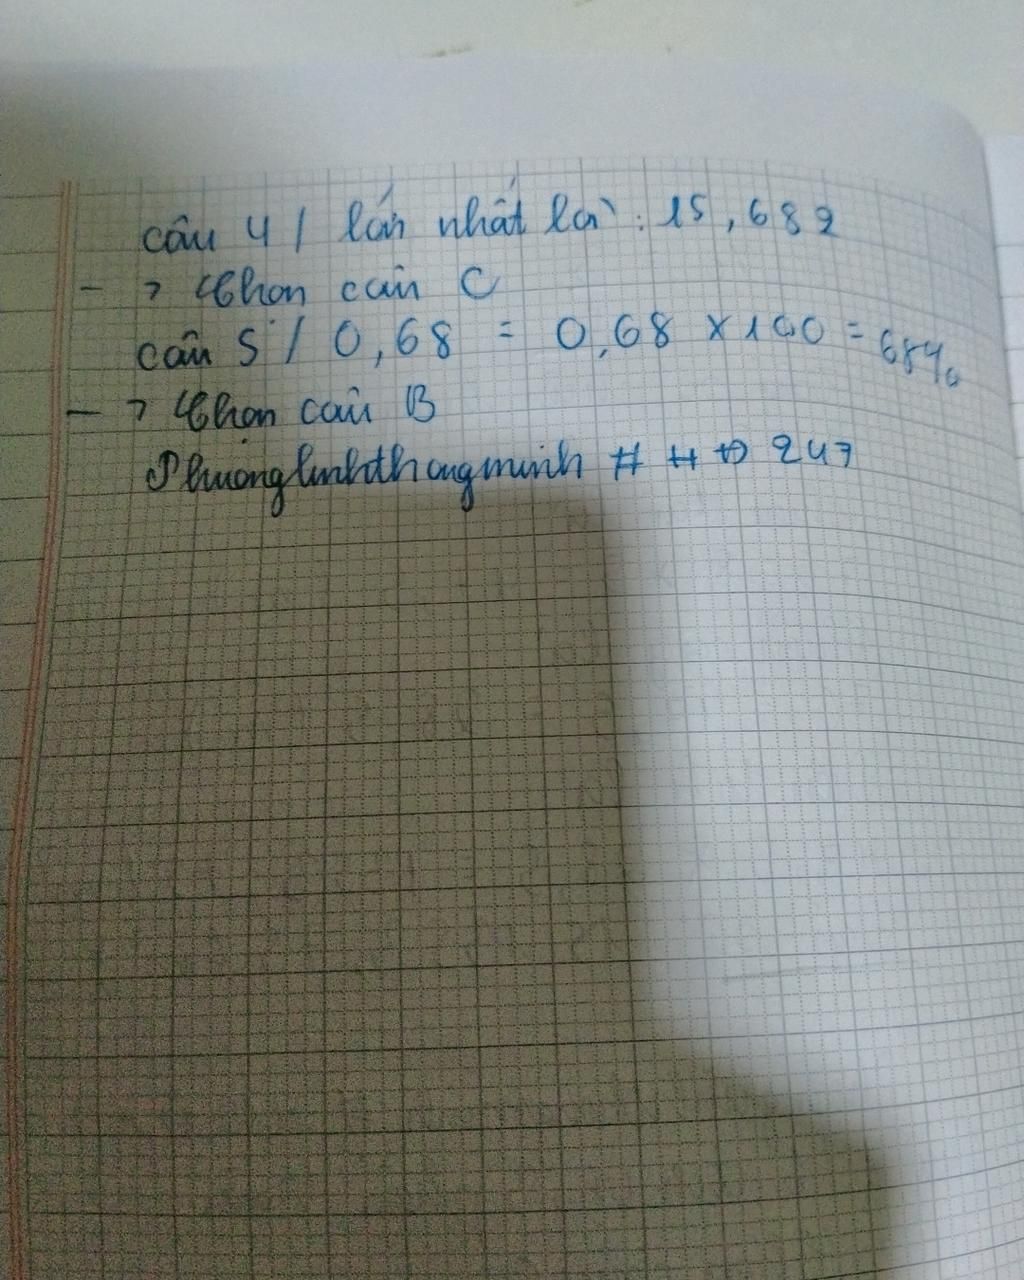 câu 4 / lớn nhất là : 15,682
-> Chọn câu C
câu 5 / 0,68 = 0,68 x 100 = 68%
-> Chọn câu B
Phuonglinhthongminh # # 247